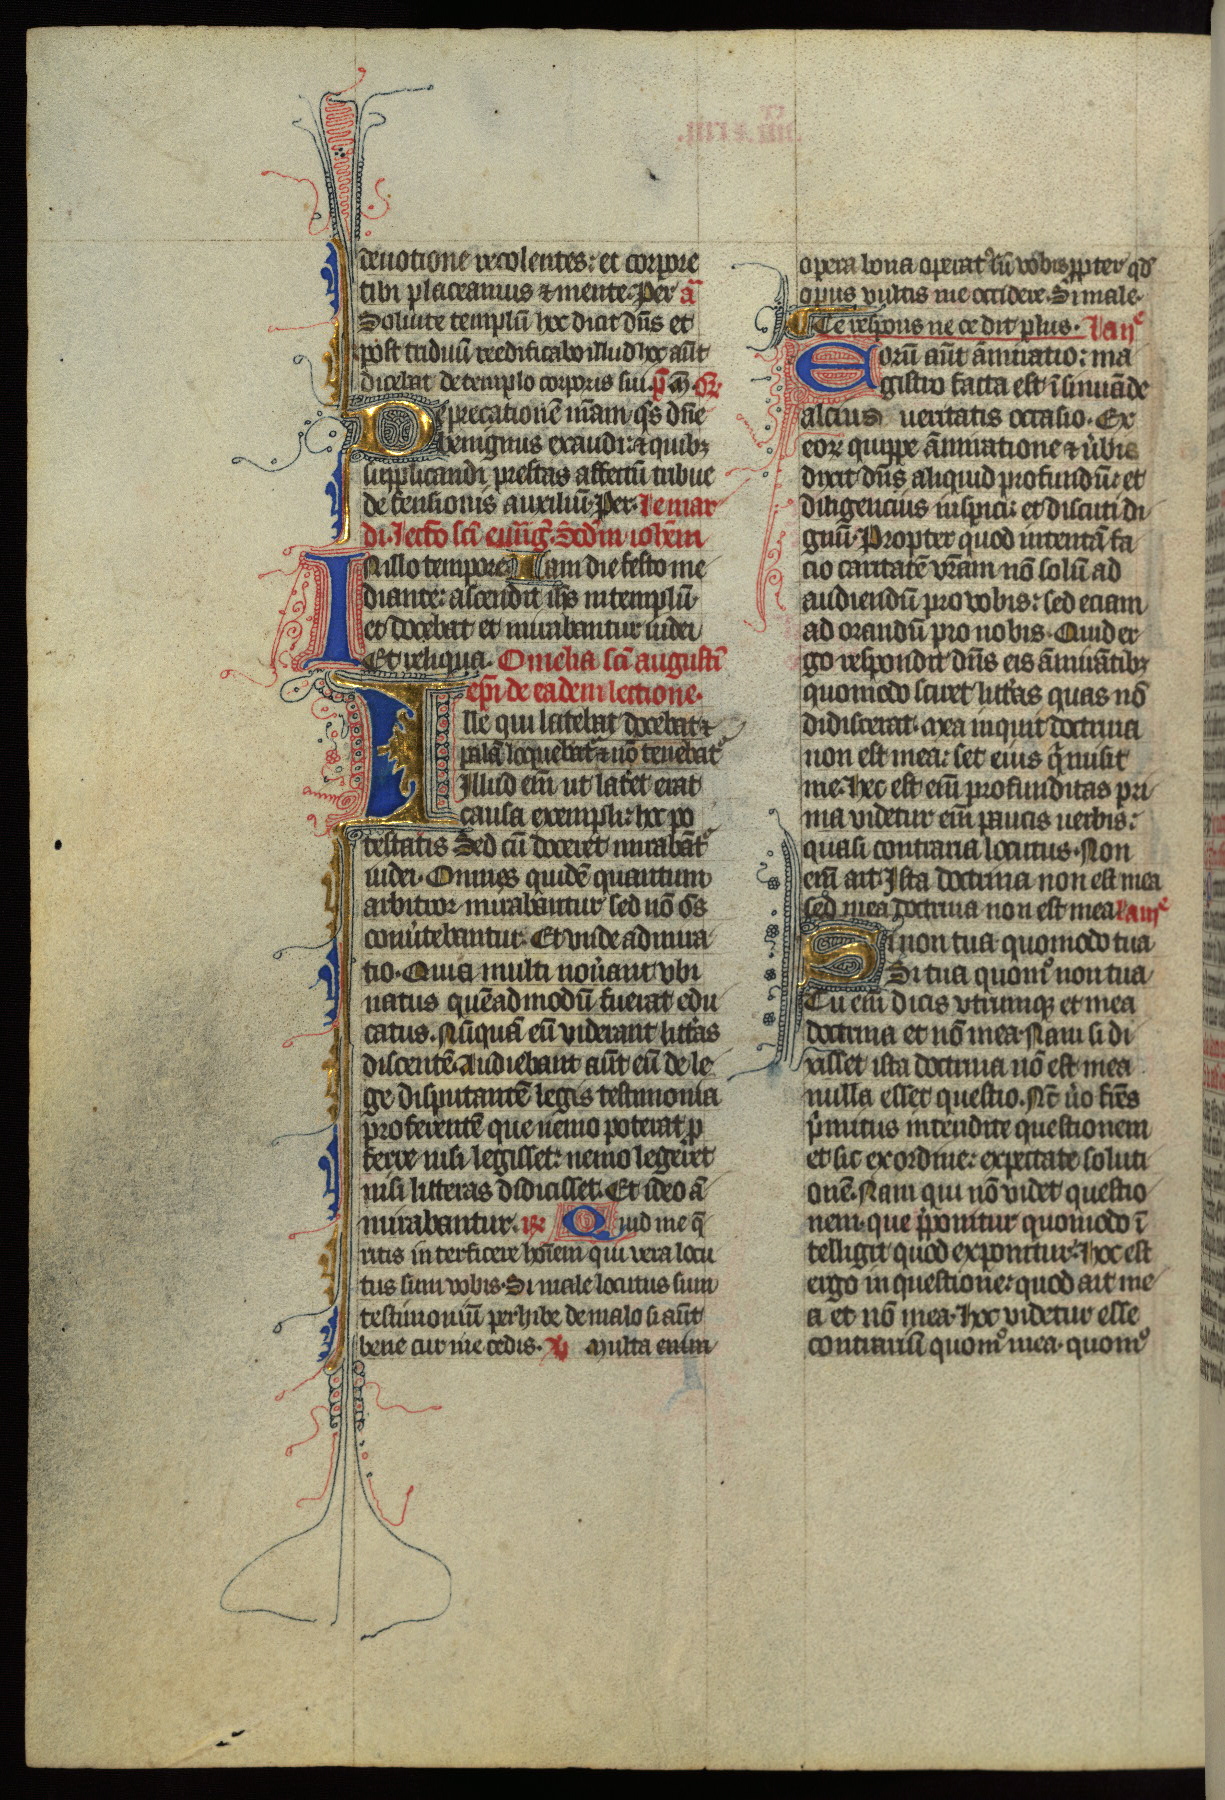 deuotione recolentes: et corpore
tibi placeamus ⁊ mente. Per. ā
Soluite templū hoc dicit dn̄s et
post triduū reedificabo illud hoc aūt
dicebat de templo corporis sui.
Deprecationē nr̄am qs̄ dn̄e
benignus exaudi: ⁊ quibꝫ
supplicandi prestas affectū tribue
defensionis auxiliū. Per. Le mar
di. lectō sc̄i eūūg̃. Sc̄dm ioh̄em
In illo tempore. Iam die festo me
diante: ascendit ih̄s in templū.
et docebat et mirabantur iudei
Et reliqua. Omelia sc̄i augustī
ep̄i de eadem lectione.
Ille qui latebat docebat ⁊
palā loquebat᷑ ⁊ nō tenebat᷑
Illud em̄ ut lateret erat
causa exempli: hoc po
testatis Sed cū doceret mirabāt᷑
iudei. Omnes quidē quantum
arbitror mirabantur sed nō om̄s
conu̾tebantur. Et vnde admira
tio. Quia multi nou̾ant vbi
natus quēadmodū fuerat edu
catus. Nūquā eū viderant litt̾as
discentē. Audiebant aūt eū de le
ge disputantē legis testimonia
proferentē que nemo poterat ꝓ
ferre nisi legisset: nemo legeret
nisi litteras didicisset. Et ideo ā
mirabantur. Quid me q̄
ritis interficere hoīem qui vera locu
tus sum vobis. Si male locutus sum
testimoniū perhibe de malo si aūt
bene cur me cedis. Multa enim
opera bona operat᷒ sū vobis ꝓpter qd̄
opus vultis me occidere. Si male.
Te respons ne ce dit plus.
Eorū aūt āmiratio: ma
gistro facta est īsinuāde
alcius ueritatis occasio. Ex
eoꝝ quippe āmiratione ⁊ u̾bis
dixit dn̄s aliquid profundū: et
diligencius inspici: et discuti di
gnū. Propter quod intentā fa
cio caritatē vr̄am nō solū ad
audiendū pro vobis: sed eciam
ad orandū pro nobis. Quid er
go respondit dn̄s eis āmirātibꝫ
quomodo sciret litt̾as quas nō
didiscerat. Mea inquit doctrina
non est mea: set eius q̄ misit
me. Hec est em̄ profunditas pri
ma videtur em̄ paucis uerbis:
quasi contraria locutus. Non
em̄ ait. Ista doctrina non est mea
sed mea doctrina non est mea
Si non tua quomodo tua
Si tua quom̊ non tua
Tu em̄ dicis vtrumqꝫ et mea
doctrina et nō mea. Nam si di
xisset ista doctrina nō est mea
nulla esset questio. Nc̄ u̾o fr̄es
p̾mitus intendite questionem
et sic ex ordine: expectate soluti
onē. Nam qui nō videt questio
nem que p̾ponitur quomodo ī
telligit quod exponitur. Hoc est
ergo in questione: quod ait me
a et nō mea. Hoc videtur esse
contrariū quom̊ mea. quom̊